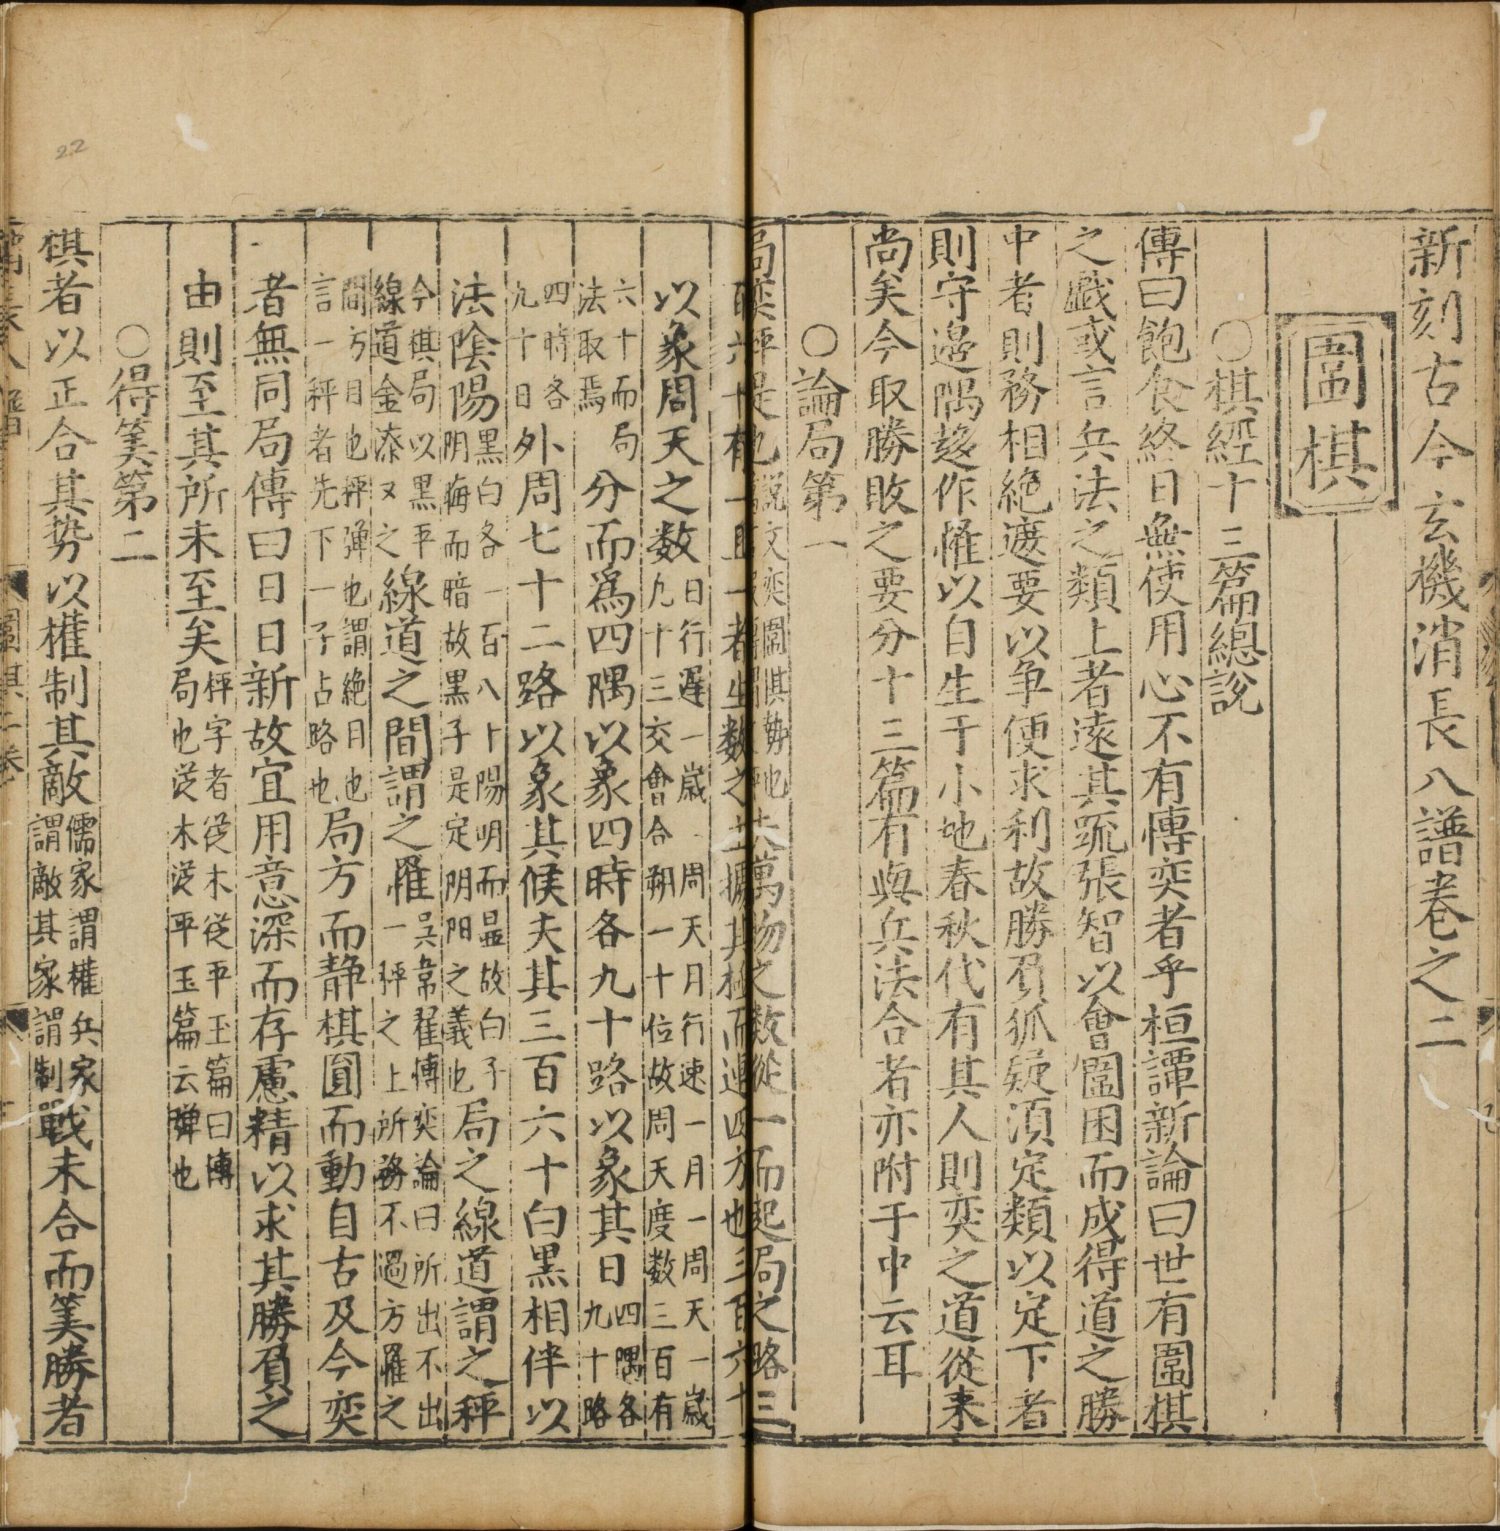 新刻古今玄機消長八譜卷之二
圍棋
○棋經十三篇總說
傳曰飽食終日無使用心不有慱奕者乎桓譚新論曰世有圍棋
之戯或言兵法之類上者遠其䟽張智以會圍困而成得道之勝
中者則務相絶遮要以争便求利故勝負狐疑湏定類以定下者
則守邉隅趍作惟以自生于小地春秋代有其人則奕之道從来
尚矣今取勝敗之要分十三篇有與兵法合者亦附于中云耳
○論局第一
夫萬物之数從一而起局之路三
百六十有一且一者生数之主據其極而運四方也三百六十
以象周天之数日行遲一歳一周天月行速一月一周天一歳
九十三交會合朔一十位故周天度数三百有
六十而局
法取焉分而爲四隅以象四時各九十路以象其日四隅各
九十路
四時各
九十日外周七十二路以象其候夫其三百六十白黑相伴以
法陰陽黑白各一百八十陽明而显故白子
阴晦而暗故黑子是定阴阳之義也局之線道謂之秤
今棋局以黑平
線道金漆又之線道之間謂之罹吳韋翟傳奕論曰所出不出
一秤之上所務不過方罹之
間方目也枰彈也謂絶目也
言一秤者先下一子占路也局方而静棋圓而動自古及今奕
者無同局傳曰日日新故宜用意深而存慮精以求其勝負之
由則至其所未至矣枰字者從木從平玉篇曰慱
局也從木從平玉篇云彈也
○得筭第二
棋者以正合其势以權制其敵儒家謂權兵家
謂敵其家謂制戰未合而筭勝者